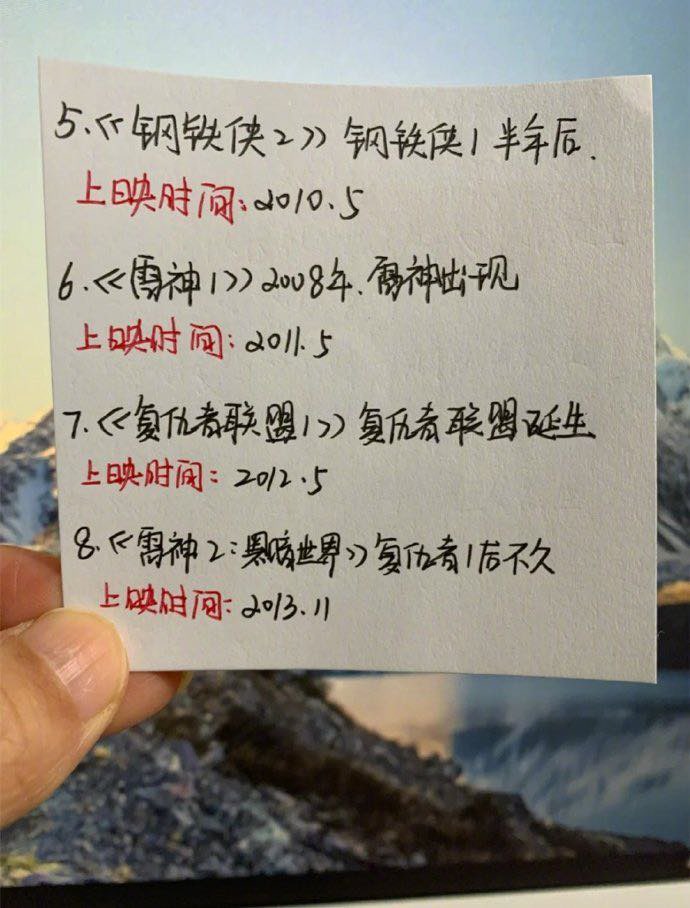 5.《钢铁侠2》钢铁侠1半年后.
上映时间:2010.5
6.《雷神1》2008年.雷神出现
上映时间:2011.5
7.《复仇者联盟1》复仇者联盟诞生
上映时间:2012.5
8.《雷神2:黑暗世界》复仇者1后不久
上映时间:2013.11